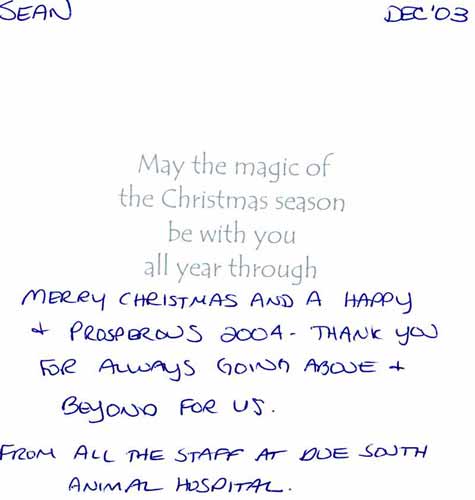 SEAN DEC'03
May the magic of
the Christmas season
be with you
all year through
MERRY CHRISTMAS AND A HAPPY
+ PROSPEROUS 2004 - THANK YOU
FOR ALWAYS GOING ABOVE +
BEYOND FOR US.
FROM ALL THE STAFF AT DUE SOUTH
ANIMAL HOSPITAL.